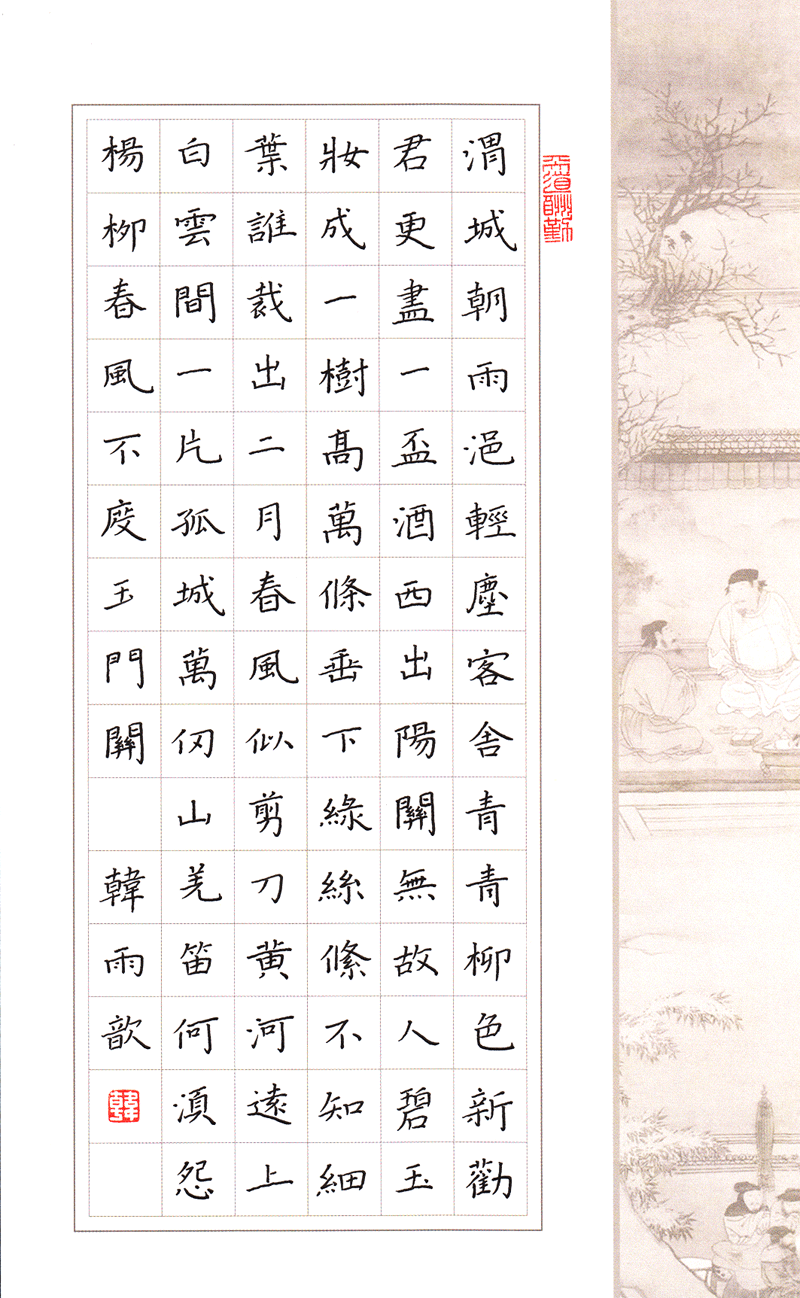 天道酬勤
渭城朝雨浥輕塵客舍青青柳色新勸
君更盡一盃酒西出陽關無故人碧玉
妝成一樹髙萬條垂下綠絲絛不知細
葉誰裁出二月春風似剪刀黄河遠上
白雲間一片孤城萬仞山羌笛何湏怨
楊柳春風不度玉門關 韓雨歆
韓